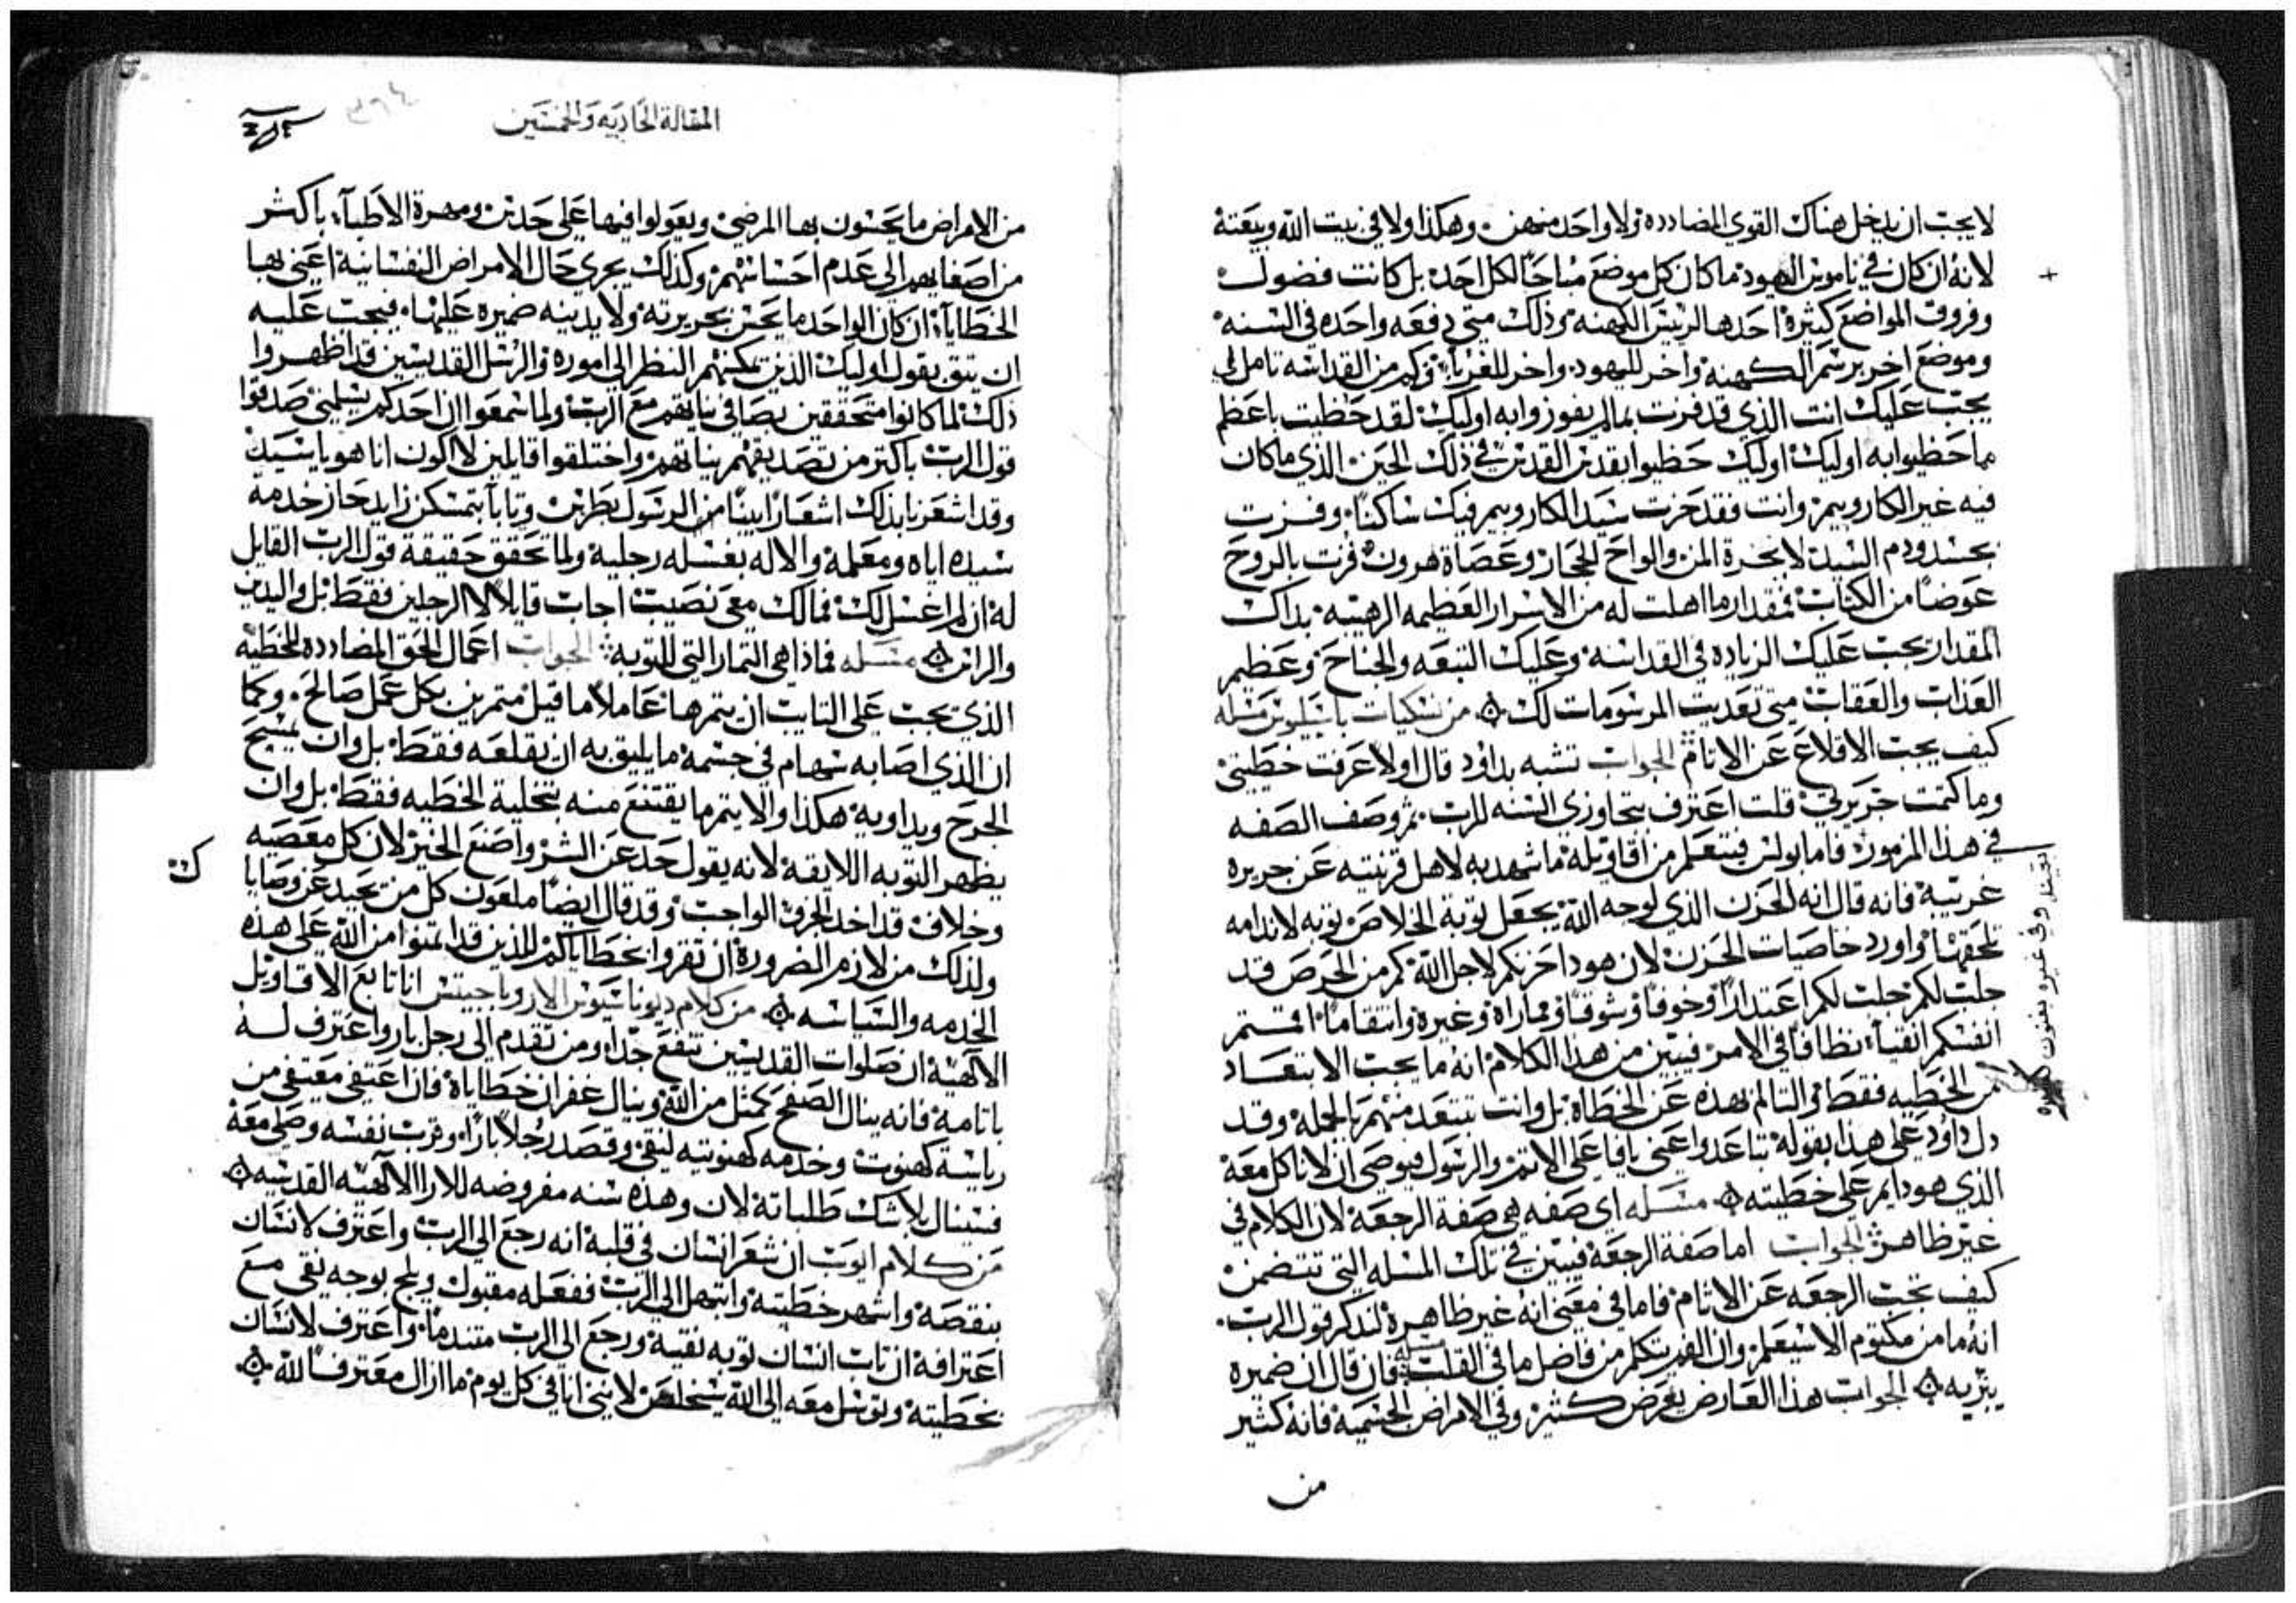 لايجب ان يدخل هناك القوي المضادده ولا واحد منهن وهكذا ولا في بيت الله وبيعته
لانه ان كان في ناموس اليهود ما كان كل موضع مباحًا لكل احد بل كانت فضول
وفروق المواضع كثيرة احدها لرييس الكهنه وذلك متي دفعه واحده في السنه
وموضع اخر برسم الكهنه واخر لليهود واخر للغربآ فكم من القداسه تامل لي
يجب عليك انت الذي قد فزت بمالم يفوزوا به اوليك لقد حظيت باعظم
ما حظيوا به اوليك اوليك حظيوا بقدس القدس في ذلك الحين الذي ما كان
فيه غير الكاروبيم وانت فقد حزت سيد الكاروبيم فيك ساكنًا وفزت
بجسد ودم السيد لا بجرة المن والواح الحجار وعصاة هرون فزت بالروح
عوضًا من الكتاب بمقدار ما اهلت له من الاسرار العظيمه الرهيبه بذاك
المقدار يجب عليك الزياده في القداسه وعليك التبعه والجناح وعظيم
العذاب والعقاب متي تعديت المرسومات لك من نسكيات باسيليوس مسله
كيف يجب الاقلاع عن الاثام الجواب تشبه بداود قال اولا عرفت خطيتي
وما كتمت جريرتي قلت اعترف بتجاوزي السنه للرب ثم وصف الصفه
في هذا المزمور فاما بولس فيتعلم من اقاويله ما شهد به لاهل قرنتيه عن جريره
غريبة فانه قال انه الحزن الذي لوجه الله يجعل توبة الخلاص توبه لاندامه
تلحقها واورد خاصيات الحزن لان هوذا حزنكم لاجل الله كم من الحرص قد
جلب لكم جلب لكم اعتدارًا وخوفًا وشوقًا ومماراة وغيرة وانتقامًا اقمتم
انفسكم انقيآ نظافًا في الامر فيبين من هذا الكلام انه ما يجب الابتعاد
من الخطيه فقط والتالم بهذه عن الخطاة بل وانت تبتعد منهم بالجمله وقد
دل داود علي هذا بقوله تباعدوا عني يا فاعلي الاثم والرسول فيوصي ان لا ناكل معه
الذي هو دايم علي خطيته مسله اي صفه هي صفة الرجعه لان الكلام في
غير ظاهر الجواب اما صفة الرجعة فيبين في تلك المسله التي تتضمن
كيف تجب الرجعه عن الاثام فاما في معني انه غير ظاهرة لنذكر قول الرب
انه ما من مكتوم الا سيعلم وان الفم يتكلم من فاضل ما في القلب مسله فان قال ان ضميره
يتربه الجواب هذا العارض يعرض كثير وفي الامراض الجسميه فانه كثير
من
المقالة الحاديه والخمسين
٣٦٤
من الامراض ما يحسون بها المرضي ويعولوا فيها علي حدس ومهرة الاطبآ باكثر
من اصغايهم الي عدم احساسهم وكذلك يجري حال الامراض النفسانيه اعني بها
الخطايآ ان كان الواحد ما يحس بجريرته ولا يدينه ضميره عليها فيجب عليه
ان يثق بقول اوليك الذين تمكنهم النظر الي اموره والرسل القديسين قد اظهروا
ذلك لما كانوا متحققين بصافي نياتهم مع الرب ولما سمعوا ان احدكم يسلمني صدقوا
قول الرب باكثر من تصديقهم نياتهم واختلفوا قايلين لا اكون انا هو يا سيد
وقد اشعرنا بذلك اشعارًا بينًا من الرسول بطرس وتابا بتمسكن زايد حاز خدمة
سيده اياه ومعلمة والاله بغسله رجليه ولما تحقق حقيقة قول الرب القايل
له ان لم اغسل لك فمالك معي نصيب اجاب قايلًا لا الرجلين فقط بل واليدين
والراس مسله فماذا هي الثمار التي للتوبه الجواب اعمال الحق المضادده للخطيه
الذي يجب علي التايب ان يثمرها عاملًا ما قيل مثمرين بكل عمل صالح وكما
ان الذي اصابه سهام في جسمه ما يليق به ان يقلعه فقط بل وان يمسح
الجرح ويداويه هكذا والايثم ما يقتنع منه بتخلية الخطيه فقط بل وان
يظهر التوبه اللايقة لانه يقول حد عن الشر واصنع الخير لان كل معصيه
وخلاف قد اخد الجزا الواجب وقد قال ايضًا ملعون كل من يحيد عن وصايا
ولذلك من لازم الضرورة ان تقروا بخطاياكم للذين قد ايتمنوا من الله علي هذه
الخدمه والسياسه من كلام ديوناسيوس الاروباجيتس انا تابع الاقاويل
الالهية ان صلوات القديسين تنفع جدًا ومن تقدم الي رجل بار واعترف له
باثامه فانه ينال الصفح كمثل من الله وينال غفران خطاياه فان اعتفي معتفي من
رياسة كهنوت وخدمه كهنوتيه لنقي وقصد رجلًا بارًا وقرب نفسه وصلي معه
فسينال بلا شك طلباته لان وهذه سنه مفروضه للارا الالهيه القدسيه
من كلام ايوب ان شعر انسان في قلبه انه رجع الي الرب واعترف لانسان
بنقصه واشهر خطيته وابتهل الي الرب ففعله مقبول ويلج بوجه نقي مع
اعترافه ان تاب انسان توبه نقية ورجع الي الرب متندمًا واعترف لانسان
بخطيته وتوسل معه الي الله سيخلص لانني انا في كل يوم ما ازال معترفًا لله